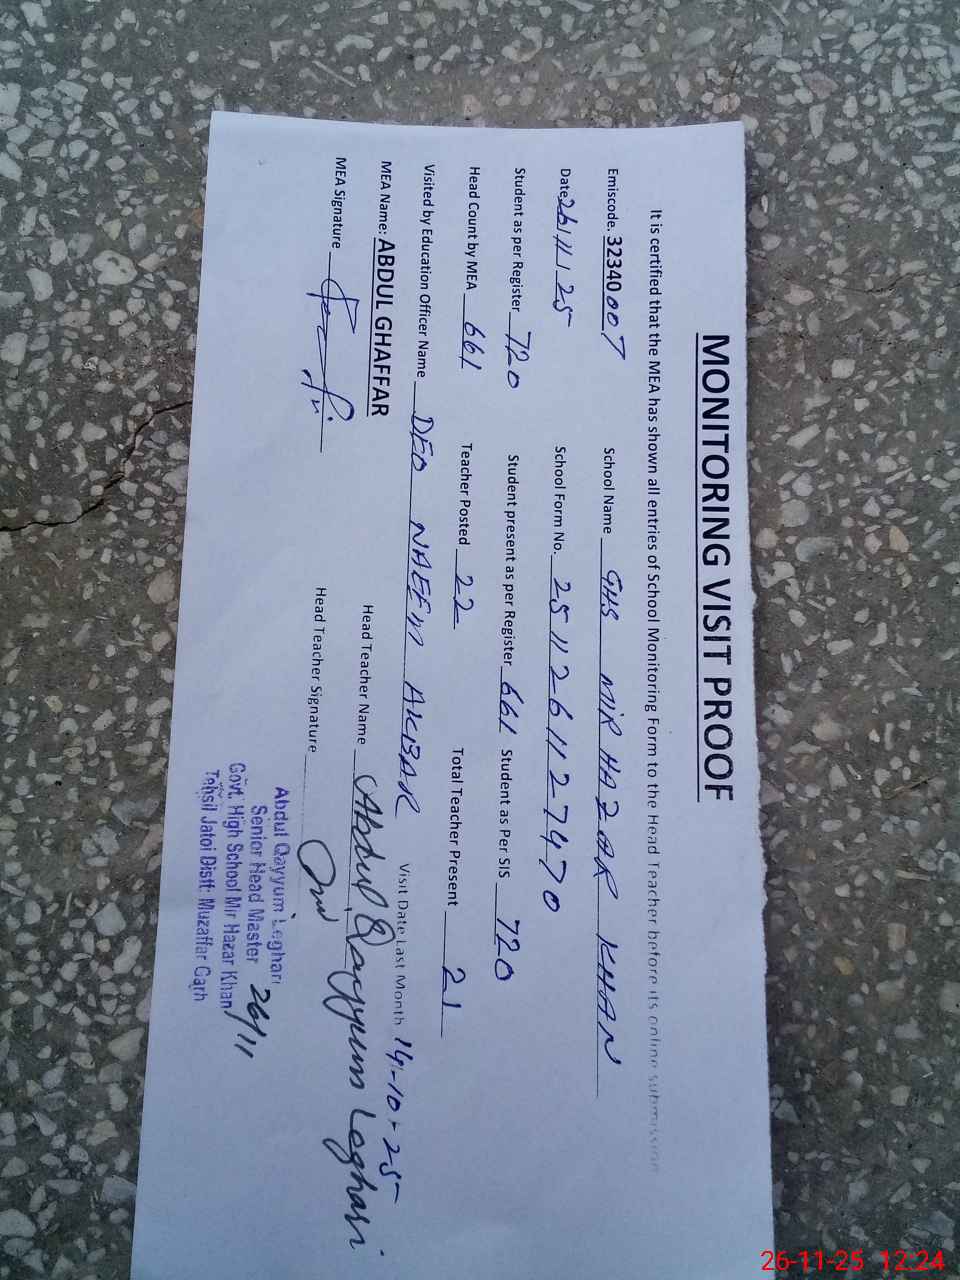 MONITORING VISIT PROOF
It is certified that the MEA has shown all entries of School Monitoring Form to the Head Teacher before its online submission
Emiscode. 32340007 School Name GHS MIR HAZAR KHAN
Date 26/11/25 School Form No. 2511261127470
Student as per Register 720 Student present as per Register 661 Student as Per SIS 720
Head Count by MEA 661 Teacher Posted 22 Total Teacher Present 21
Visited by Education Officer Name DEO NAEEM AKBAR Visit Date Last Month 14-10-25
MEA Name: ABDUL GHAFFAR Head Teacher Name Abdul Qayyum Leghari
MEA Signature Head Teacher Signature
Abdul Qayyum Leghari
Senior Head Master 26/11
Govt. High School Mir Hazar Khan
Tehsil Jatoi Distt: Muzaffar Garh
26-11-25 12:24